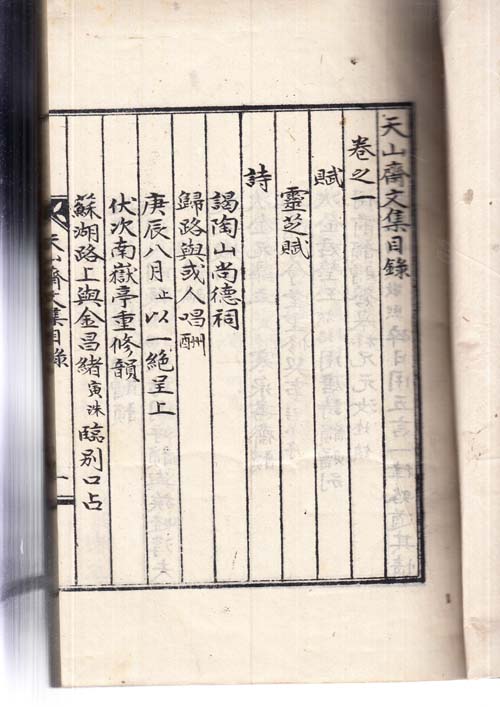 天山齋文集目錄
卷之一
賦
靈芝賦
詩
謁陶山尚德祠
歸路與或人唱酬
庚辰八月止以一絶呈上
伏次南嶽亭重修韻
蘇湖路上與金昌緖寅洙臨別口占
天山齋文集目錄 一